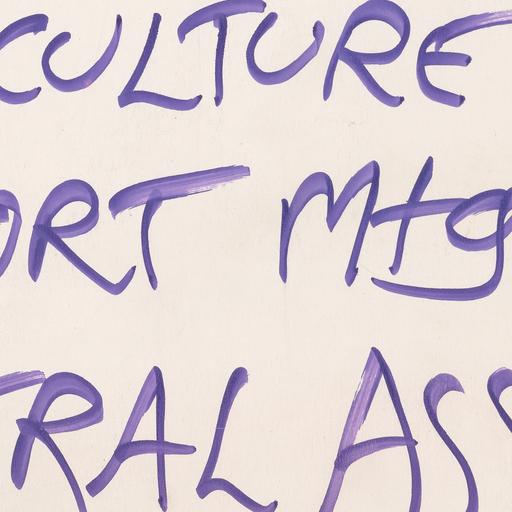 CULTURE
ORT Mtg
RAL ASS